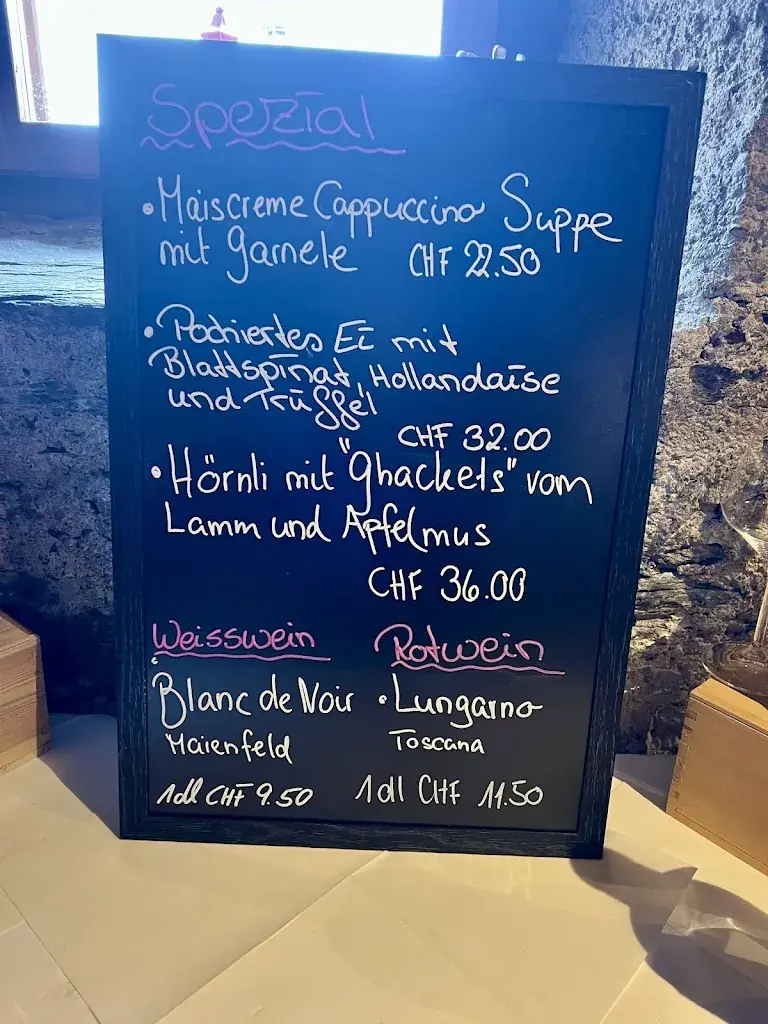 Spezial
• Maiscreme Cappuccino Suppe
mit Garnele CHF 22.50
• Pochiertes Ei mit
Blattspinat, Hollandaise
und Trüffel
CHF 32.00
• Hörnli mit "Ghackets" vom
Lamm und Apfelmus
CHF 36.00
Weisswein
• Blanc de Noir
Maienfeld
1dl CHF 9.50
Rotwein
• Lungarno
Toscana
1dl CHF 11.50